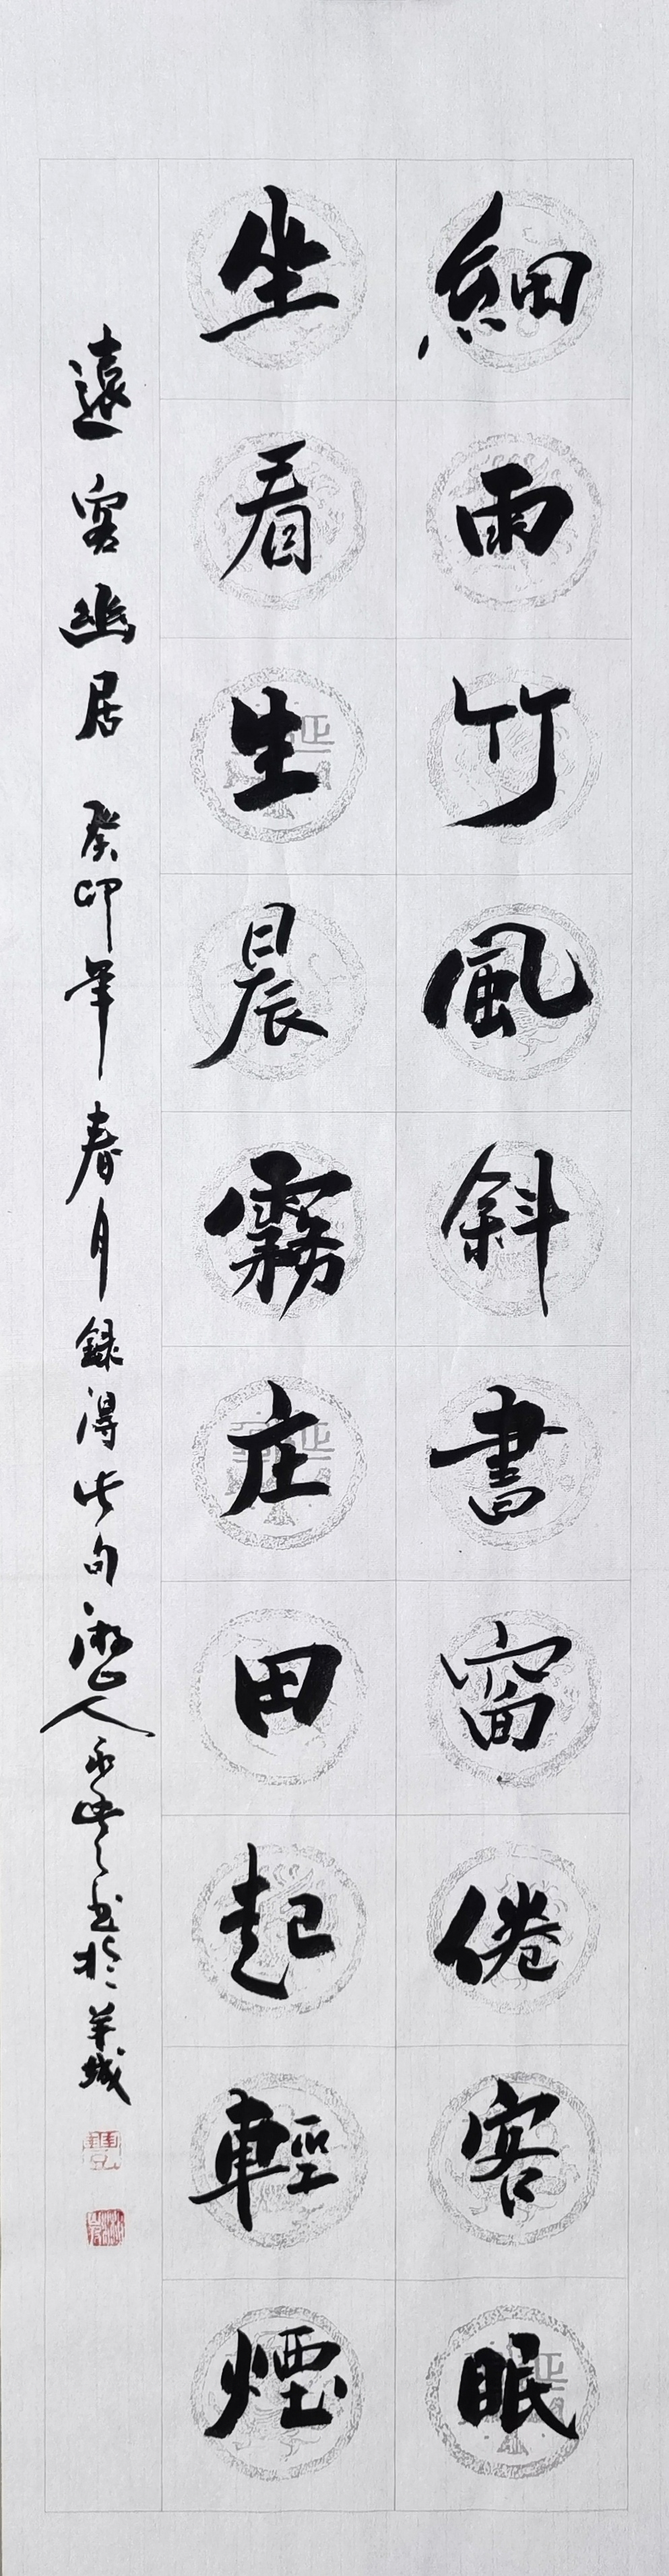 細雨竹風斜書窗倦客眠
坐看生晨霧庄田起輕煙
遠客幽居 癸卯年春月錄得此句 人 書於羊城